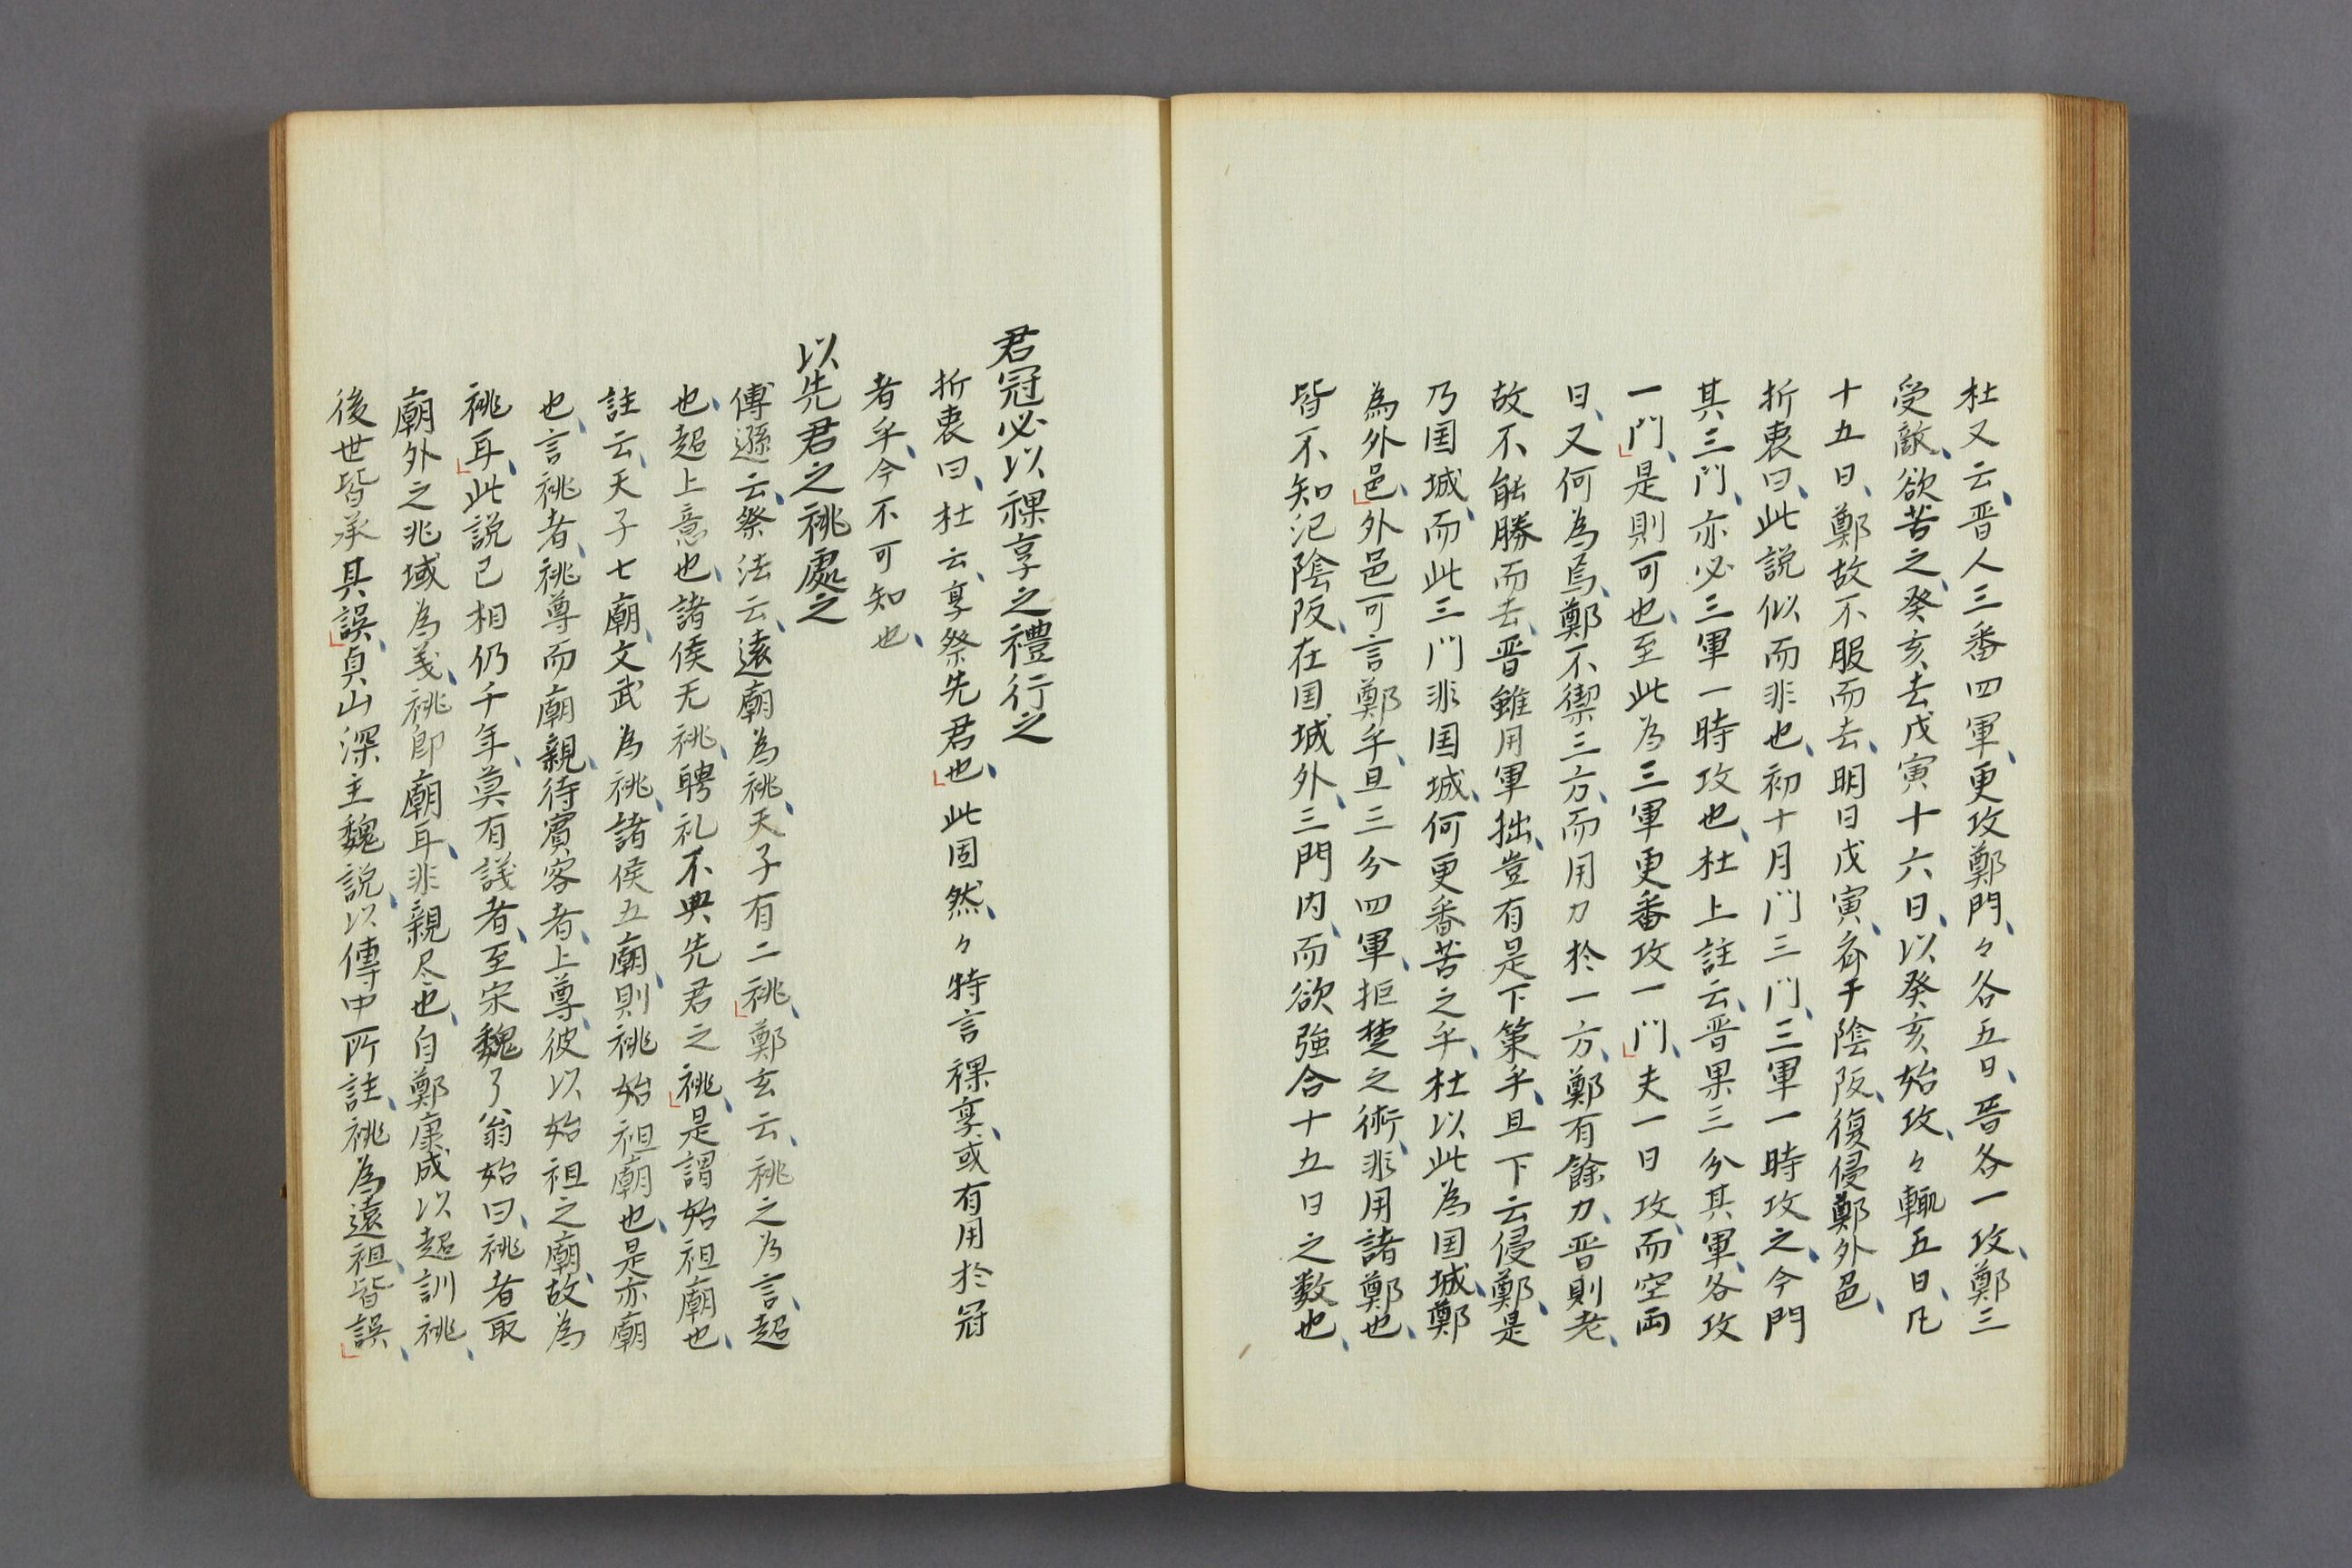 杜又云、晋人三番四軍、更攻鄭門、々各五日、晋各一攻、鄭三
受敵、欲苦之、癸亥去戊寅十六日、以癸亥始攻、々輒五日、凡
十五日、鄭故不服而去、明日戊寅、済于陰阪、復侵鄭外邑、
折衷曰、此説似而非也、初十月門三門、三軍一時攻之、今門
其三門、亦必三軍一時攻也、杜上註云、晋果三分其軍、各攻
一門、是則可也、至此為三軍更番攻一門、夫一日攻、而空両
日、又何為焉、鄭不禦三方、而用力於一方、鄭有餘力、晋則老、
故不能勝而去、晋雖用軍拙、豈有是下策乎、且下云侵鄭、是
乃国城、而此三門非国城、何更番苦之乎、杜以此為国城、鄭
為外邑、外邑可言鄭乎、且三分四軍、拒楚之術、非用諸鄭也、
皆不知氾陰阪、在国城外、三門内、而欲強合十五日之数也、
君冠必以祼享之禮行之
折衷曰、杜云、享祭先君也、此固然、々特言祼享、或有用於冠
者乎、今不可知也、
以先君之祧處之
傅遜云、祭法云、遠廟為祧、天子有二祧、鄭玄云、祧之為言、超
也、超上意也、諸侯无祧、聘礼不典先君之祧、是謂始祖廟也、
註云、天子七廟、文武為祧、諸侯五廟、則祧始祖廟也、是亦廟
也、言祧者、祧尊而廟親、待賓客者、上尊、彼以始祖之廟、故為
祧耳、此説已相仍千年、莫有議者、至宋魏了翁始曰、祧者取
廟外之兆域為義、祧即廟耳、非親尽也、自鄭康成以超訓祧、
後世皆承其誤、貞山深主魏説、以傳中所註、祧為遠祖、皆誤、